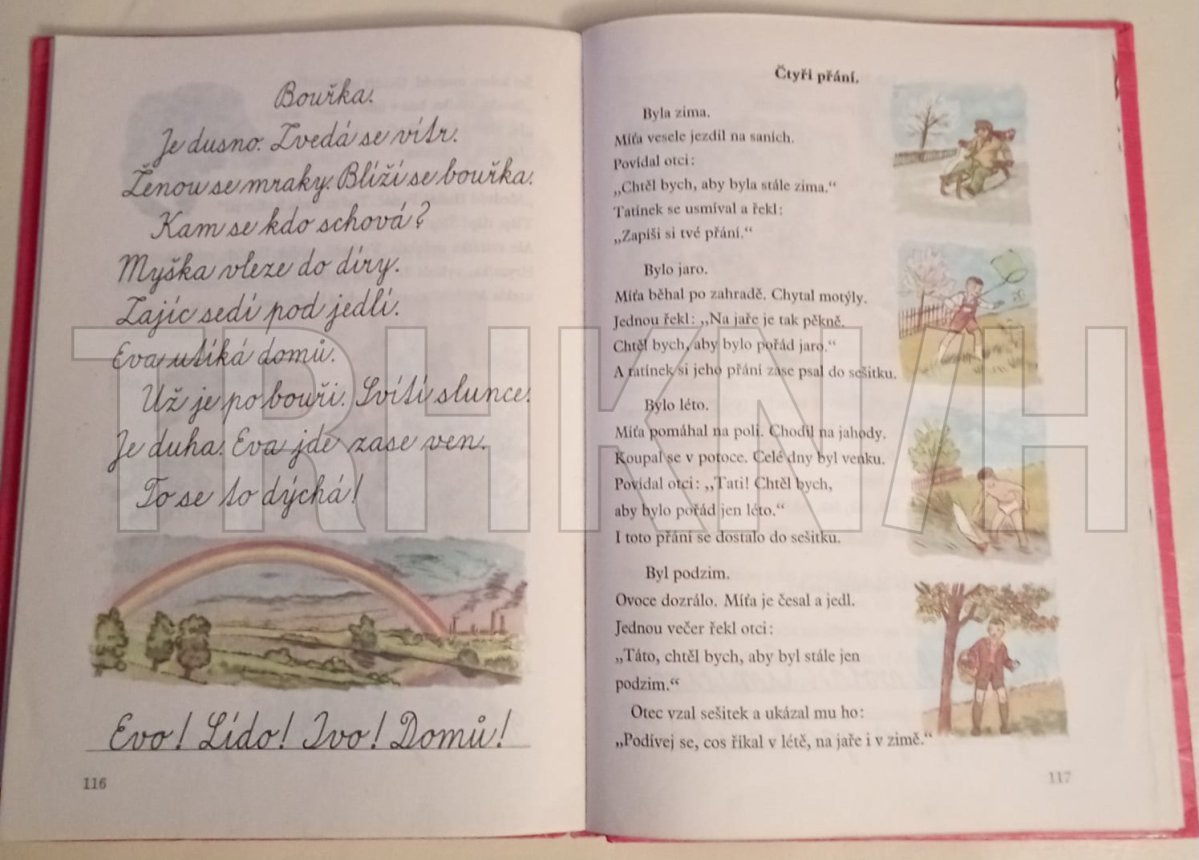 Bouřka.
Je dusno. Zvedá se vítr.
Ženou se mraky. Blíží se bouřka.
Kam se kdo schová?
Myška vleze do díry.
Zajíc sedí pod jedlí.
Eva utíká domů.
Už je po bouři. Svítí slunce.
Je duha. Eva jde zase ven.
To se to dýchá!
Evo! Lído! Ivo! Domů!
116
Čtyři přání.
Byla zima.
Míťa vesele jezdil na saních.
Povídal otci:
„Chtěl bych, aby byla stále zima.“
Tatínek se usmíval a řekl:
„Zapíši si tvé přání.“
Bylo jaro.
Míťa běhal po zahradě. Chytal motýly.
Jednou řekl: „Na jaře je tak pěkně.
Chtěl bych, aby bylo pořád jaro.“
A tatínek si jeho přání zase psal do sešitku.
Bylo léto.
Míťa pomáhal na poli. Chodil na jahody.
Koupal se v potoce. Celé dny byl venku.
Povídal otci: „Tati! Chtěl bych,
aby bylo pořád jen léto.“
I toto přání se dostalo do sešitku.
Byl podzim.
Ovoce dozrálo. Míťa je česal a jedl.
Jednou večer řekl otci:
„Táto, chtěl bych, aby byl stále jen
podzim.“
Otec vzal sešitek a ukázal mu ho:
„Podívej se, cos říkal v létě, na jaře i v zimě.“
117
TRHKNIH